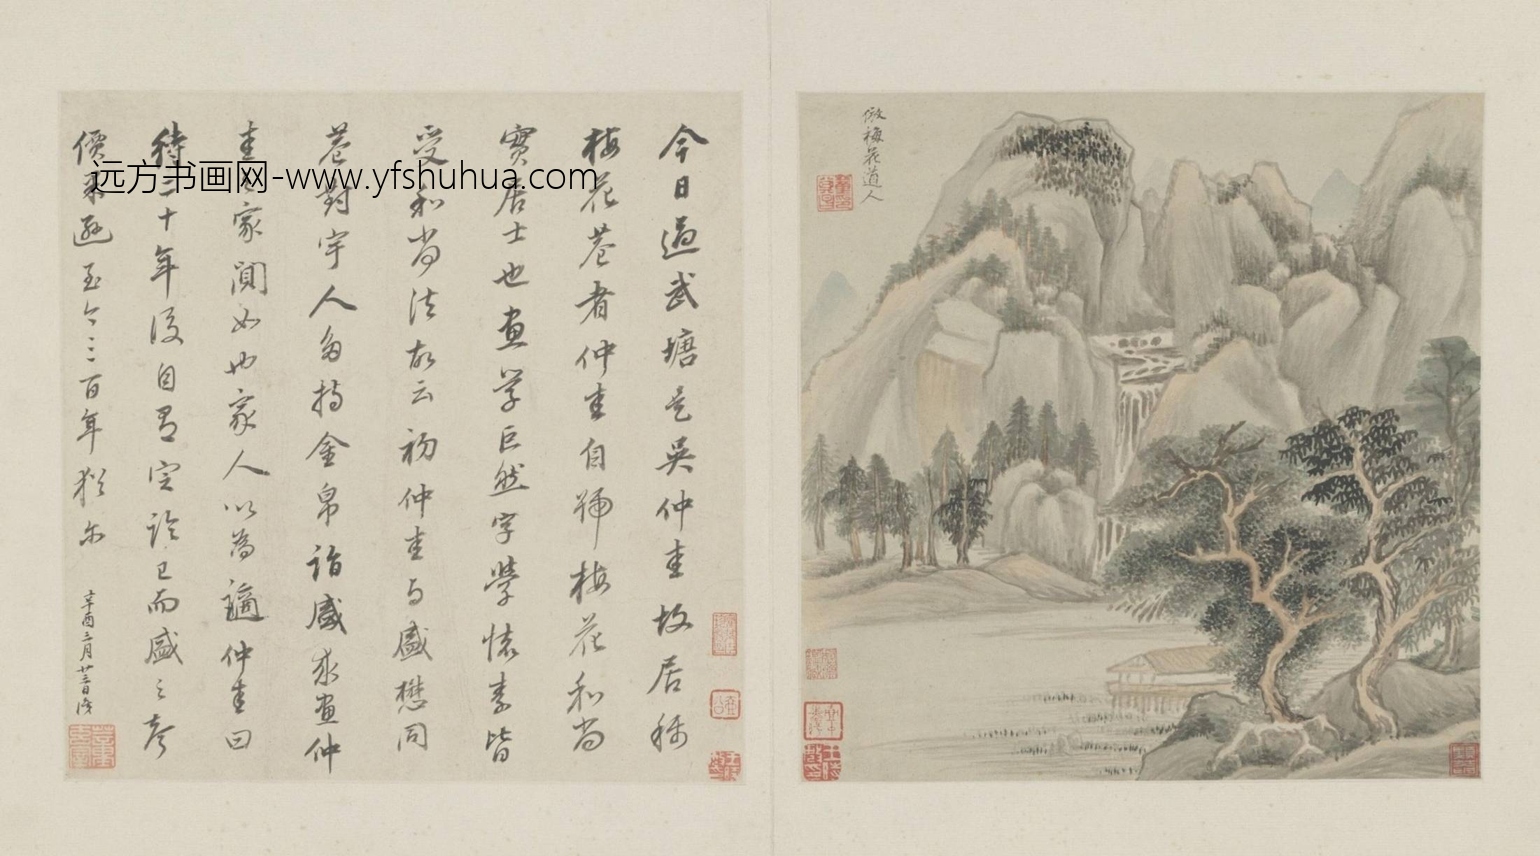 倣梅花道人
今日過武塘是吳仲圭故居稱
梅花菴者仲圭自號梅花和尚
實居士也畫學巨然字學懷素皆
受和尚法故云初仲圭与盛懋同
巷對宇人多持金帛詣盛求畫仲
圭之家閴如也家人以為謫仲圭曰
待二十年後自有定論已而盛之声
價果遜至今三百年猶尓
辛酉三月廿三日識
远方书画网-www.yfshuhua.com